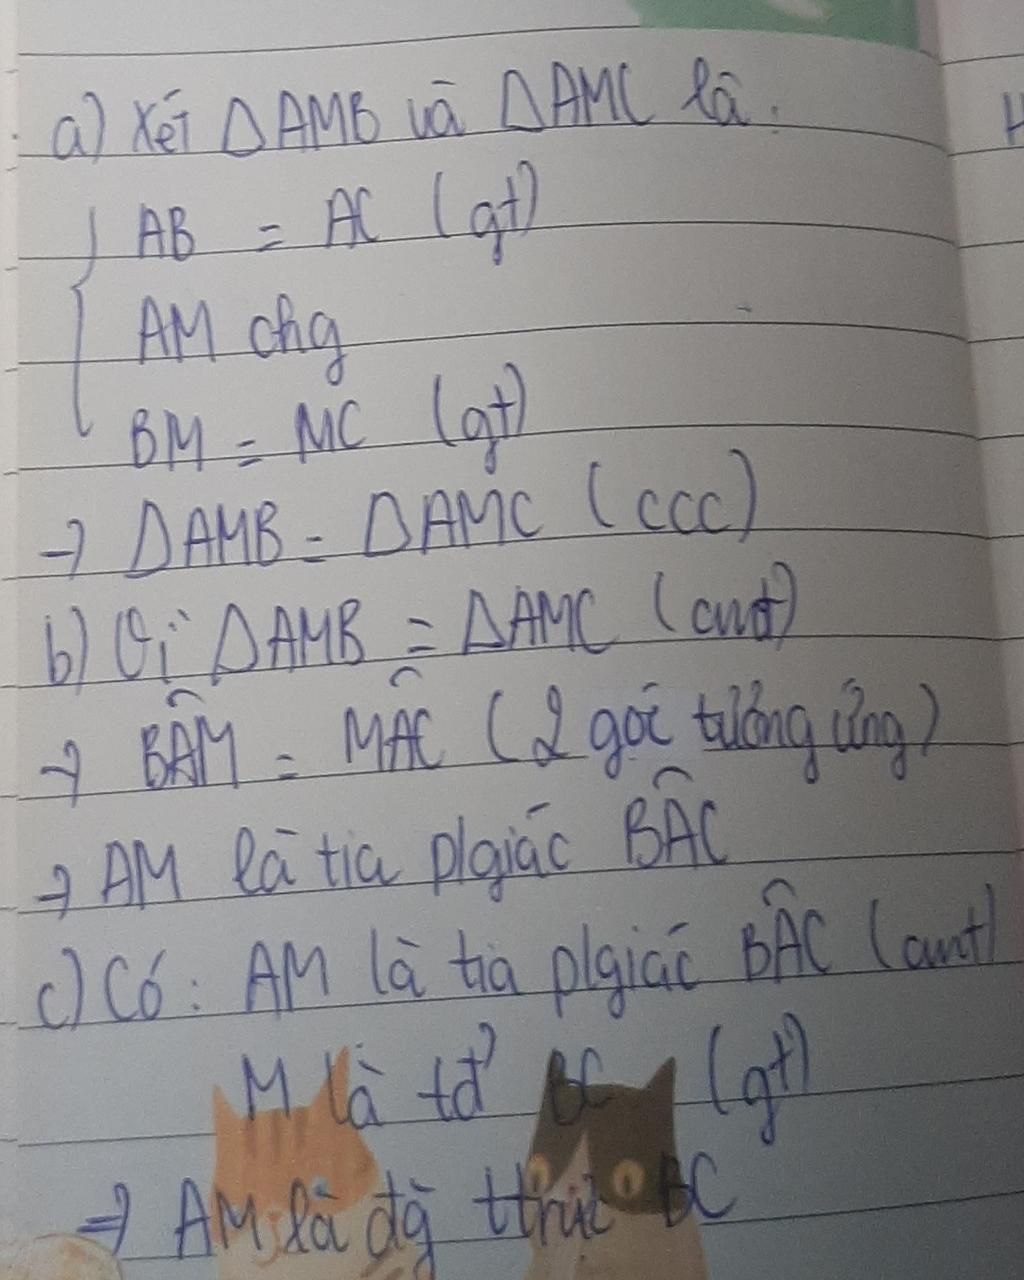 a) Xét ΔAMB và ΔAMC là:
AB = AC (gt)
AM chg
BM = MC (gt)
→ ΔAMB = ΔAMC (ccc)
b) Vì ΔAMB = ΔAMC (cmt)
→ BÂM = MÂC (2 góc tương ứng)
→ AM là tia p/giác BÂC
c) Có: AM là tia p/giác BÂC (cmt)
M là tđ' BC (gt)
⇒ AM là đg ttrực BC
H